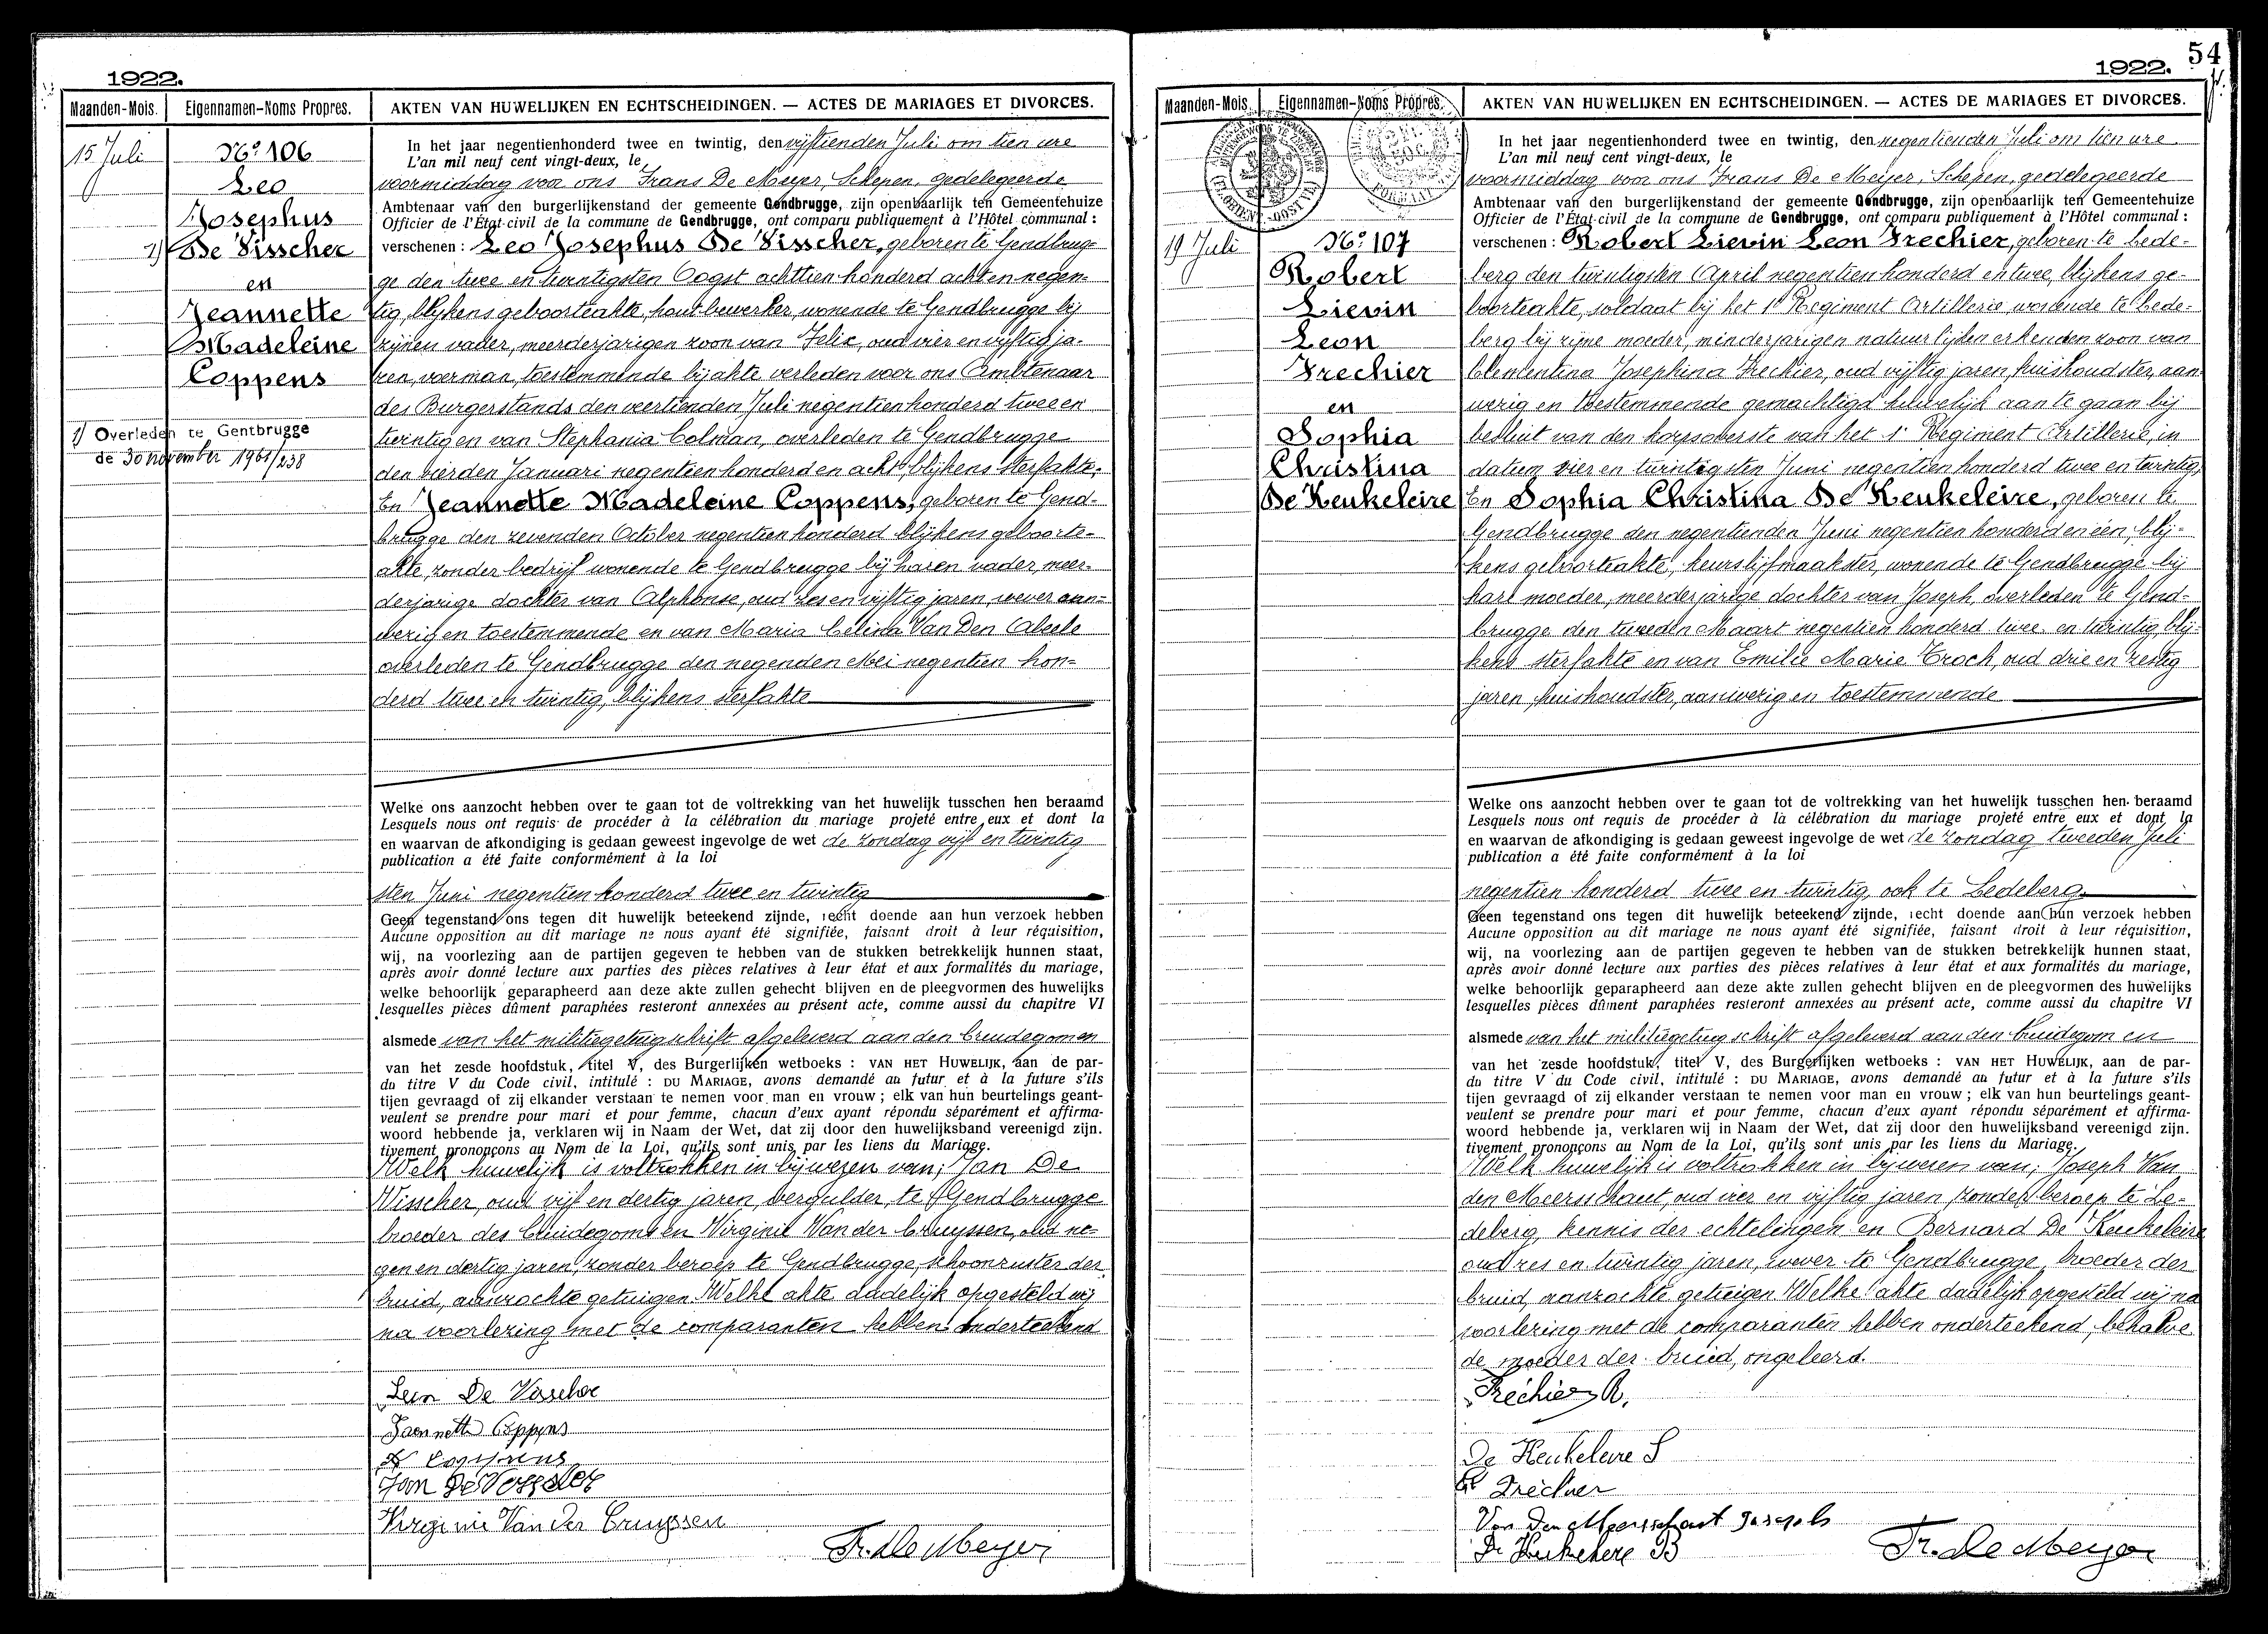 1922.
Maanden-Mois. Eigennamen-Noms Propres. AKTEN VAN HUWELIJKEN EN ECHTSCHEIDINGEN. — ACTES DE MARIAGES ET DIVORCES.
15 Juli
No 106
Leo
Josephus
1) De Visscher
en
Jeannette
Madeleine
Coppens
1) Overleden te Gentbrugge
de 30 november 1961/238
In het jaar negentienhonderd twee en twintig, den vijftienden Juli om tien ure
L'an mil neuf cent vingt-deux, le
voormiddag voor ons Frans De Meyer, Schepen, gedelegeerde
Ambtenaar van den burgerlijkenstand der gemeente Gendbrugge, zijn openbaarlijk ten Gemeentehuize
Officier de l'État-civil de la commune de Gendbrugge, ont comparu publiquement à l'Hôtel communal :
verschenen : Leo Josephus De Visscher, geboren te Gendbrug-
ge den twee en twintigsten Oogst achttien honderd acht en negen-
tig, blijkens geboorteakte, houtbewerker, wonende te Gendbrugge bij
zijnen vader, meerderjarigen zoon van Felix, oud vier en vijftig ja-
ren, voerman, toestemmende bij akte verleden voor ons Ambtenaar
des Burgerstands den veertienden Juli negentien honderd twee en
twintig en van Stephania Colman, overleden te Gendbrugge
den vierden Januari negentien honderd en acht, blijkens sterfakte;
En Jeannette Madeleine Coppens, geboren te Gend-
brugge den zevenden October negentien honderd blijkens geboorte-
akte, zonder bedrijf wonende te Gendbrugge bij haren vader, meer-
derjarige dochter van Alphonse, oud zes en vijftig jaren, wever aan-
wezig en toestemmende en van Maria Celina Van Den Abeele
overleden te Gendbrugge den negenden Mei negentien hon-
derd twee en twintig, blijkens sterfakte
Welke ons aanzocht hebben over te gaan tot de voltrekking van het huwelijk tusschen hen beraamd
Lesquels nous ont requis de procéder à la célébration du mariage projeté entre eux et dont la
en waarvan de afkondiging is gedaan geweest ingevolge de wet de zondag vijf en twintig
publication a été faite conformément à la loi
sten Juni negentien honderd twee en twintig
Geen tegenstand ons tegen dit huwelijk beteekend zijnde, recht doende aan hun verzoek hebben
Aucune opposition au dit mariage ne nous ayant été signifiée, faisant droit à leur réquisition,
wij, na voorlezing aan de partijen gegeven te hebben van de stukken betrekkelijk hunnen staat,
après avoir donné lecture aux parties des pièces relatives à leur état et aux formalités du mariage,
welke behoorlijk geparapheerd aan deze akte zullen gehecht blijven en de pleegvormen des huwelijks
lesquelles pièces dûment paraphées resteront annexées au présent acte, comme aussi du chapitre VI
alsmede van het militiegetuigschrift afgeleverd aan den bruidegom en
van het zesde hoofdstuk, titel V, des Burgerlijken wetboeks : VAN HET HUWELIJK, aan de par-
du titre V du Code civil, intitulé : DU MARIAGE, avons demandé au futur et à la future s'ils
tijen gevraagd of zij elkander verstaan te nemen voor man en vrouw ; elk van hun beurtelings geant-
veulent se prendre pour mari et pour femme, chacun d'eux ayant répondu séparément et affirma-
woord hebbende ja, verklaren wij in Naam der Wet, dat zij door den huwelijksband vereenigd zijn.
tivement prononçons au Nom de la Loi, qu'ils sont unis par les liens du Mariage.
Welk huwelijk is voltrokken in bijwezen van; Jan De
Visscher, oud vijf en dertig jaren, vergulder, te Gendbrugge
broeder des bruidegoms en Virginie Van der Cruyssen, oud ne-
gen en dertig jaren, zonder beroep te Gendbrugge, schoonzuster der
bruid, aanzochte getuigen. Welke akte dadelijk opgesteld wij
na voorlezing met de comparanten hebben onderteekend
Leon De Visscher
Jeannette Coppens
A Coppens
Jan De Visscher
Virginie Van Der Cruyssen
Fr. De Meyer
54
1922.
Maanden-Mois. Eigennamen-Noms Propres. AKTEN VAN HUWELIJKEN EN ECHTSCHEIDINGEN. — ACTES DE MARIAGES ET DIVORCES.
19 Juli
No 107
Robert
Lievin
Leon
Frechier
en
Sophia
Christina
De Keukeleire
In het jaar negentienhonderd twee en twintig, den negentienden Juli om tien ure
L'an mil neuf cent vingt-deux, le
voormiddag voor ons Frans De Meyer, Schepen, gedelegeerde
Ambtenaar van den burgerlijkenstand der gemeente Gendbrugge, zijn openbaarlijk ten Gemeentehuize
Officier de l'État-civil de la commune de Gendbrugge, ont comparu publiquement à l'Hôtel communal :
verschenen : Robert Lievin Leon Frechier, geboren te Lede-
berg den twintigsten April negentien honderd en twee, blijkens ge-
boorteakte, soldaat bij het 1e Regiment Artillerie wonende te Lede-
berg bij zijne moeder, minderjarigen natuurlijken erkenden zoon van
Clementina Josephina Frechier, oud vijftig jaren, huishoudster, aan
wezig en toestemmende gemachtigd huwelijk aan te gaan bij
besluit van den korpsoverste van het 1e Regiment Artillerie, in
datum vier en twintigsten Juni negentien honderd twee en twintig,
En Sophia Christina De Keukeleire, geboren te
Gendbrugge den negentienden Juni negentien honderd en één, blij-
kens geboorteakte, keurslijfmaakster, wonende te Gendbrugge bij
hare moeder, meerderjarige dochter van Joseph, overleden te Gend-
brugge den tweeden Maart negentien honderd twee en twintig, blij-
kens sterfakte en van Emilie Marie Trock, oud drie en zestig
jaren, huishoudster, aanwezig en toestemmende
Welke ons aanzocht hebben over te gaan tot de voltrekking van het huwelijk tusschen hen beraamd
Lesquels nous ont requis de procéder à la célébration du mariage projeté entre eux et dont la
en waarvan de afkondiging is gedaan geweest ingevolge de wet de zondag tweeden Juli
publication a été faite conformément à la loi
negentien honderd twee en twintig, ook te Ledeberg
Geen tegenstand ons tegen dit huwelijk beteekend zijnde, recht doende aan hun verzoek hebben
Aucune opposition au dit mariage ne nous ayant été signifiée, faisant droit à leur réquisition,
wij, na voorlezing aan de partijen gegeven te hebben van de stukken betrekkelijk hunnen staat,
après avoir donné lecture aux parties des pièces relatives à leur état et aux formalités du mariage,
welke behoorlijk geparapheerd aan deze akte zullen gehecht blijven en de pleegvormen des huwelijks
lesquelles pièces dûment paraphées resteront annexées au présent acte, comme aussi du chapitre VI
alsmede van het militiegetuigschrift afgeleverd aan den bruidegom en
van het zesde hoofdstuk, titel V, des Burgerlijken wetboeks : VAN HET HUWELIJK, aan de par-
du titre V du Code civil, intitulé : DU MARIAGE, avons demandé au futur et à la future s'ils
tijen gevraagd of zij elkander verstaan te nemen voor man en vrouw ; elk van hun beurtelings geant-
veulent se prendre pour mari et pour femme, chacun d'eux ayant répondu séparément et affirma-
woord hebbende ja, verklaren wij in Naam der Wet, dat zij door den huwelijksband vereenigd zijn.
tivement prononçons au Nom de la Loi, qu'ils sont unis par les liens du Mariage.
Welk huwelijk is voltrokken in bijwezen van; Joseph Van
den Meersschaut, oud vier en vijftig jaren, zonder beroep te Le-
deberg, kennis der echtelingen en Bernard De Keukeleire
oud zes en twintig jaren, wever te Gendbrugge, broeder der
bruid, aanzochte getuigen Welke akte dadelijk opgesteld wij na
voorlezing met de comparanten hebben onderteekend, behalve
de moeder der bruid, ongeleerd.
Fréchier R.
De Keukeleire S
Fréchier
Van Den Meersschaut Joseph
De Keukeleire B
Fr. De Meyer